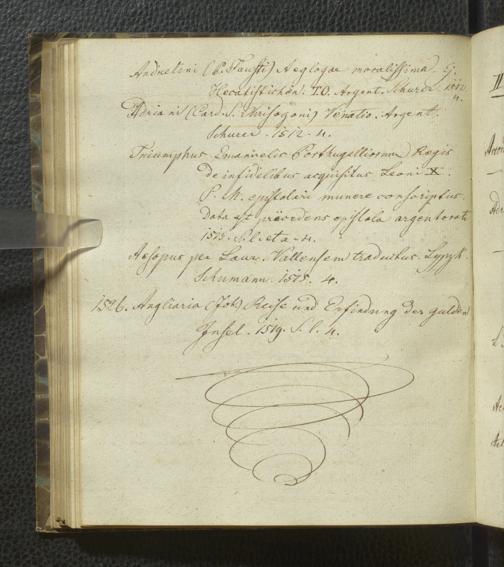 Andrelini (P. Fausti) Aeglogae moralissimae. Ej.
Hecatistichon. TO. Argent. Schurer 1512
4.
Adriani (Card. S. Chrisogoni) Venatio. Argent.
Schurer. 1512. 4.
Triumphus Emanuelis Porthugelliorum Regis
de infidelibus acquisitus Leoni X.
P. M. epistolari munere conscriptus.
Data est praecedens epistola argentorati
1513. S. l. et a. 4.
Aesopus per Laur. Vallensem traductus. Lypzk.
Schumann. 1515. 4.
1526. Angliaria (Joh) Reise und Erfindung der gulden
Insel. 1519. S. l. 4.